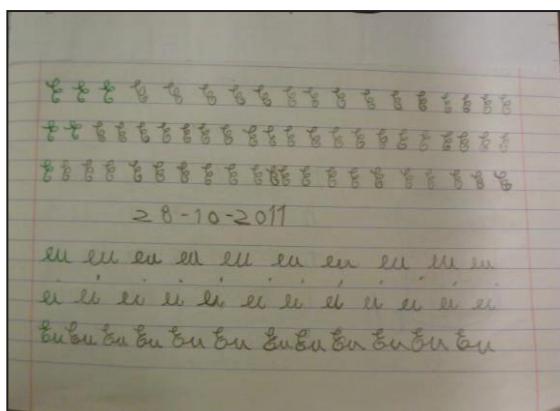 E E E E E E E E E E E E E E E E E E
E E E E E E E E E E E E E E E E E E E E E E
E E E E E E E E E E E E E E E E E E E E E
28-10-2011
eu eu eu eu eu eu eu eu eu eu
ei ei ei ei ei ei ei ei ei ei ei ei
Eu Eu Eu Eu Eu Eu Eu Eu Eu Eu Eu Eu